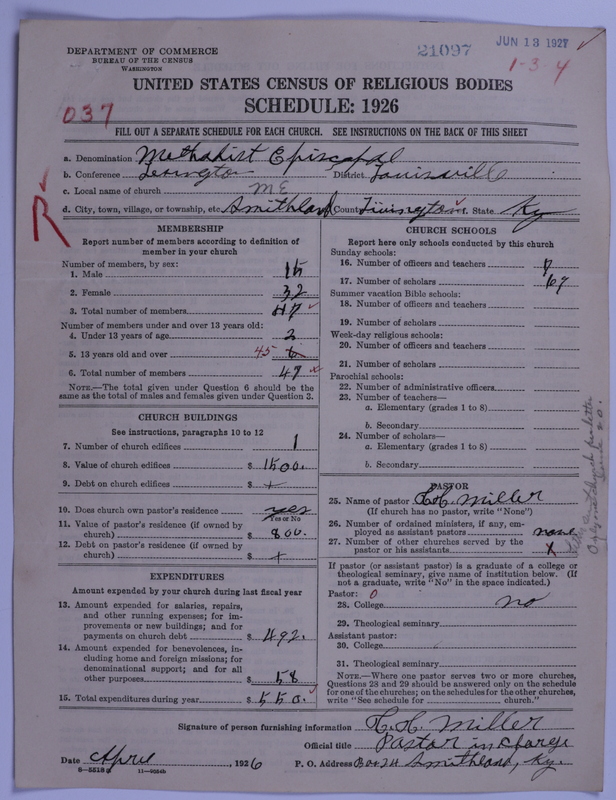 DEPARTMENT OF COMMERCE
BUREAU OF THE CENSUS
WASHINGTON
21097
JUN 13 1927
1-3-4
UNITED STATES CENSUS OF RELIGIOUS BODIES
SCHEDULE: 1926
037
FILL OUT A SEPARATE SCHEDULE FOR EACH CHURCH. SEE INSTRUCTIONS ON THE BACK OF THIS SHEET
a. Denomination Methodist Episcopal
b. Conference Lexington District Louisville
c. Local name of church ME
d. City, town, village, or township, etc. Smithland County Livingston State Ky
R
MEMBERSHIP
Report number of members according to definition of
member in your church
Number of members, by sex:
1. Male 15
2. Female 32
3. Total number of members 47
Number of members under and over 13 years old:
4. Under 13 years of age 2
5. 13 years old and over 45
6. Total number of members 47
NOTE.—The total given under Question 6 should be the
same as the total of males and females given under Question 3.
CHURCH BUILDINGS
See instructions, paragraphs 10 to 12
7. Number of church edifices 1
8. Value of church edifices $ 1500.
9. Debt on church edifices $
10. Does church own pastor's residence yes
Yes or No
11. Value of pastor's residence (if owned by
church) $ 800.
12. Debt on pastor's residence (if owned by
church) $
EXPENDITURES
Amount expended by your church during last fiscal year
13. Amount expended for salaries, repairs,
and other running expenses; for im-
provements or new buildings; and for
payments on church debt $ 492.
14. Amount expended for benevolences, in-
cluding home and foreign missions; for
denominational support; and for all
other purposes $ 58
15. Total expenditures during year $ 550.
CHURCH SCHOOLS
Report here only schools conducted by this church
Sunday schools:
16. Number of officers and teachers
17. Number of scholars 69
Summer vacation Bible schools:
18. Number of officers and teachers
19. Number of scholars
Week-day religious schools:
20. Number of officers and teachers
21. Number of scholars
Parochial schools:
22. Number of administrative officers
23. Number of teachers—
a. Elementary (grades 1 to 8)
b. Secondary
24. Number of scholars—
a. Elementary (grades 1 to 8)
b. Secondary
PASTOR
25. Name of pastor H. H. Miller
(If church has no pastor, write "None")
26. Number of ordained ministers, if any, em-
ployed as assistant pastors none
27. Number of other churches served by the
pastor or his assistants
If pastor (or assistant pastor) is a graduate of a college or
theological seminary, give name of institution below. (If
not a graduate, write "No" in the space indicated.)
Pastor: 0
28. College no
29. Theological seminary
Assistant pastor:
30. College
31. Theological seminary
NOTE.—Where one pastor serves two or more churches,
Questions 28 and 29 should be answered only on the schedule
for one of the churches; on the schedules for the other churches,
write "See schedule for church."
Signature of person furnishing information H. H. Miller
Official title Pastor in Charge
Date April, 1926 P. O. Address Box 24 Smithland, Ky.
11—9054b